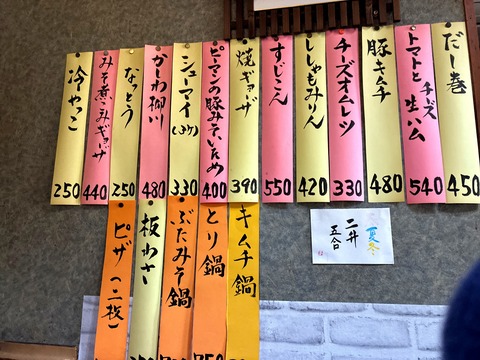 だし巻
450
トマトと
チーズ
生ハム
540
豚キムチ
480
チーズオムレツ
330
ししゃもみりん
420
すじこん
550
焼ギョーザ
390
ピーマンの豚みそいため
400
シューマイ(3ケ)
330
かしわ柳川
480
なっとう
250
みそ煮こみギョーザ
440
冷やっこ
250
キムチ鍋
とり鍋
ぶたみそ鍋
板わさ
ピザ(二枚)
夏冬
二升
五合